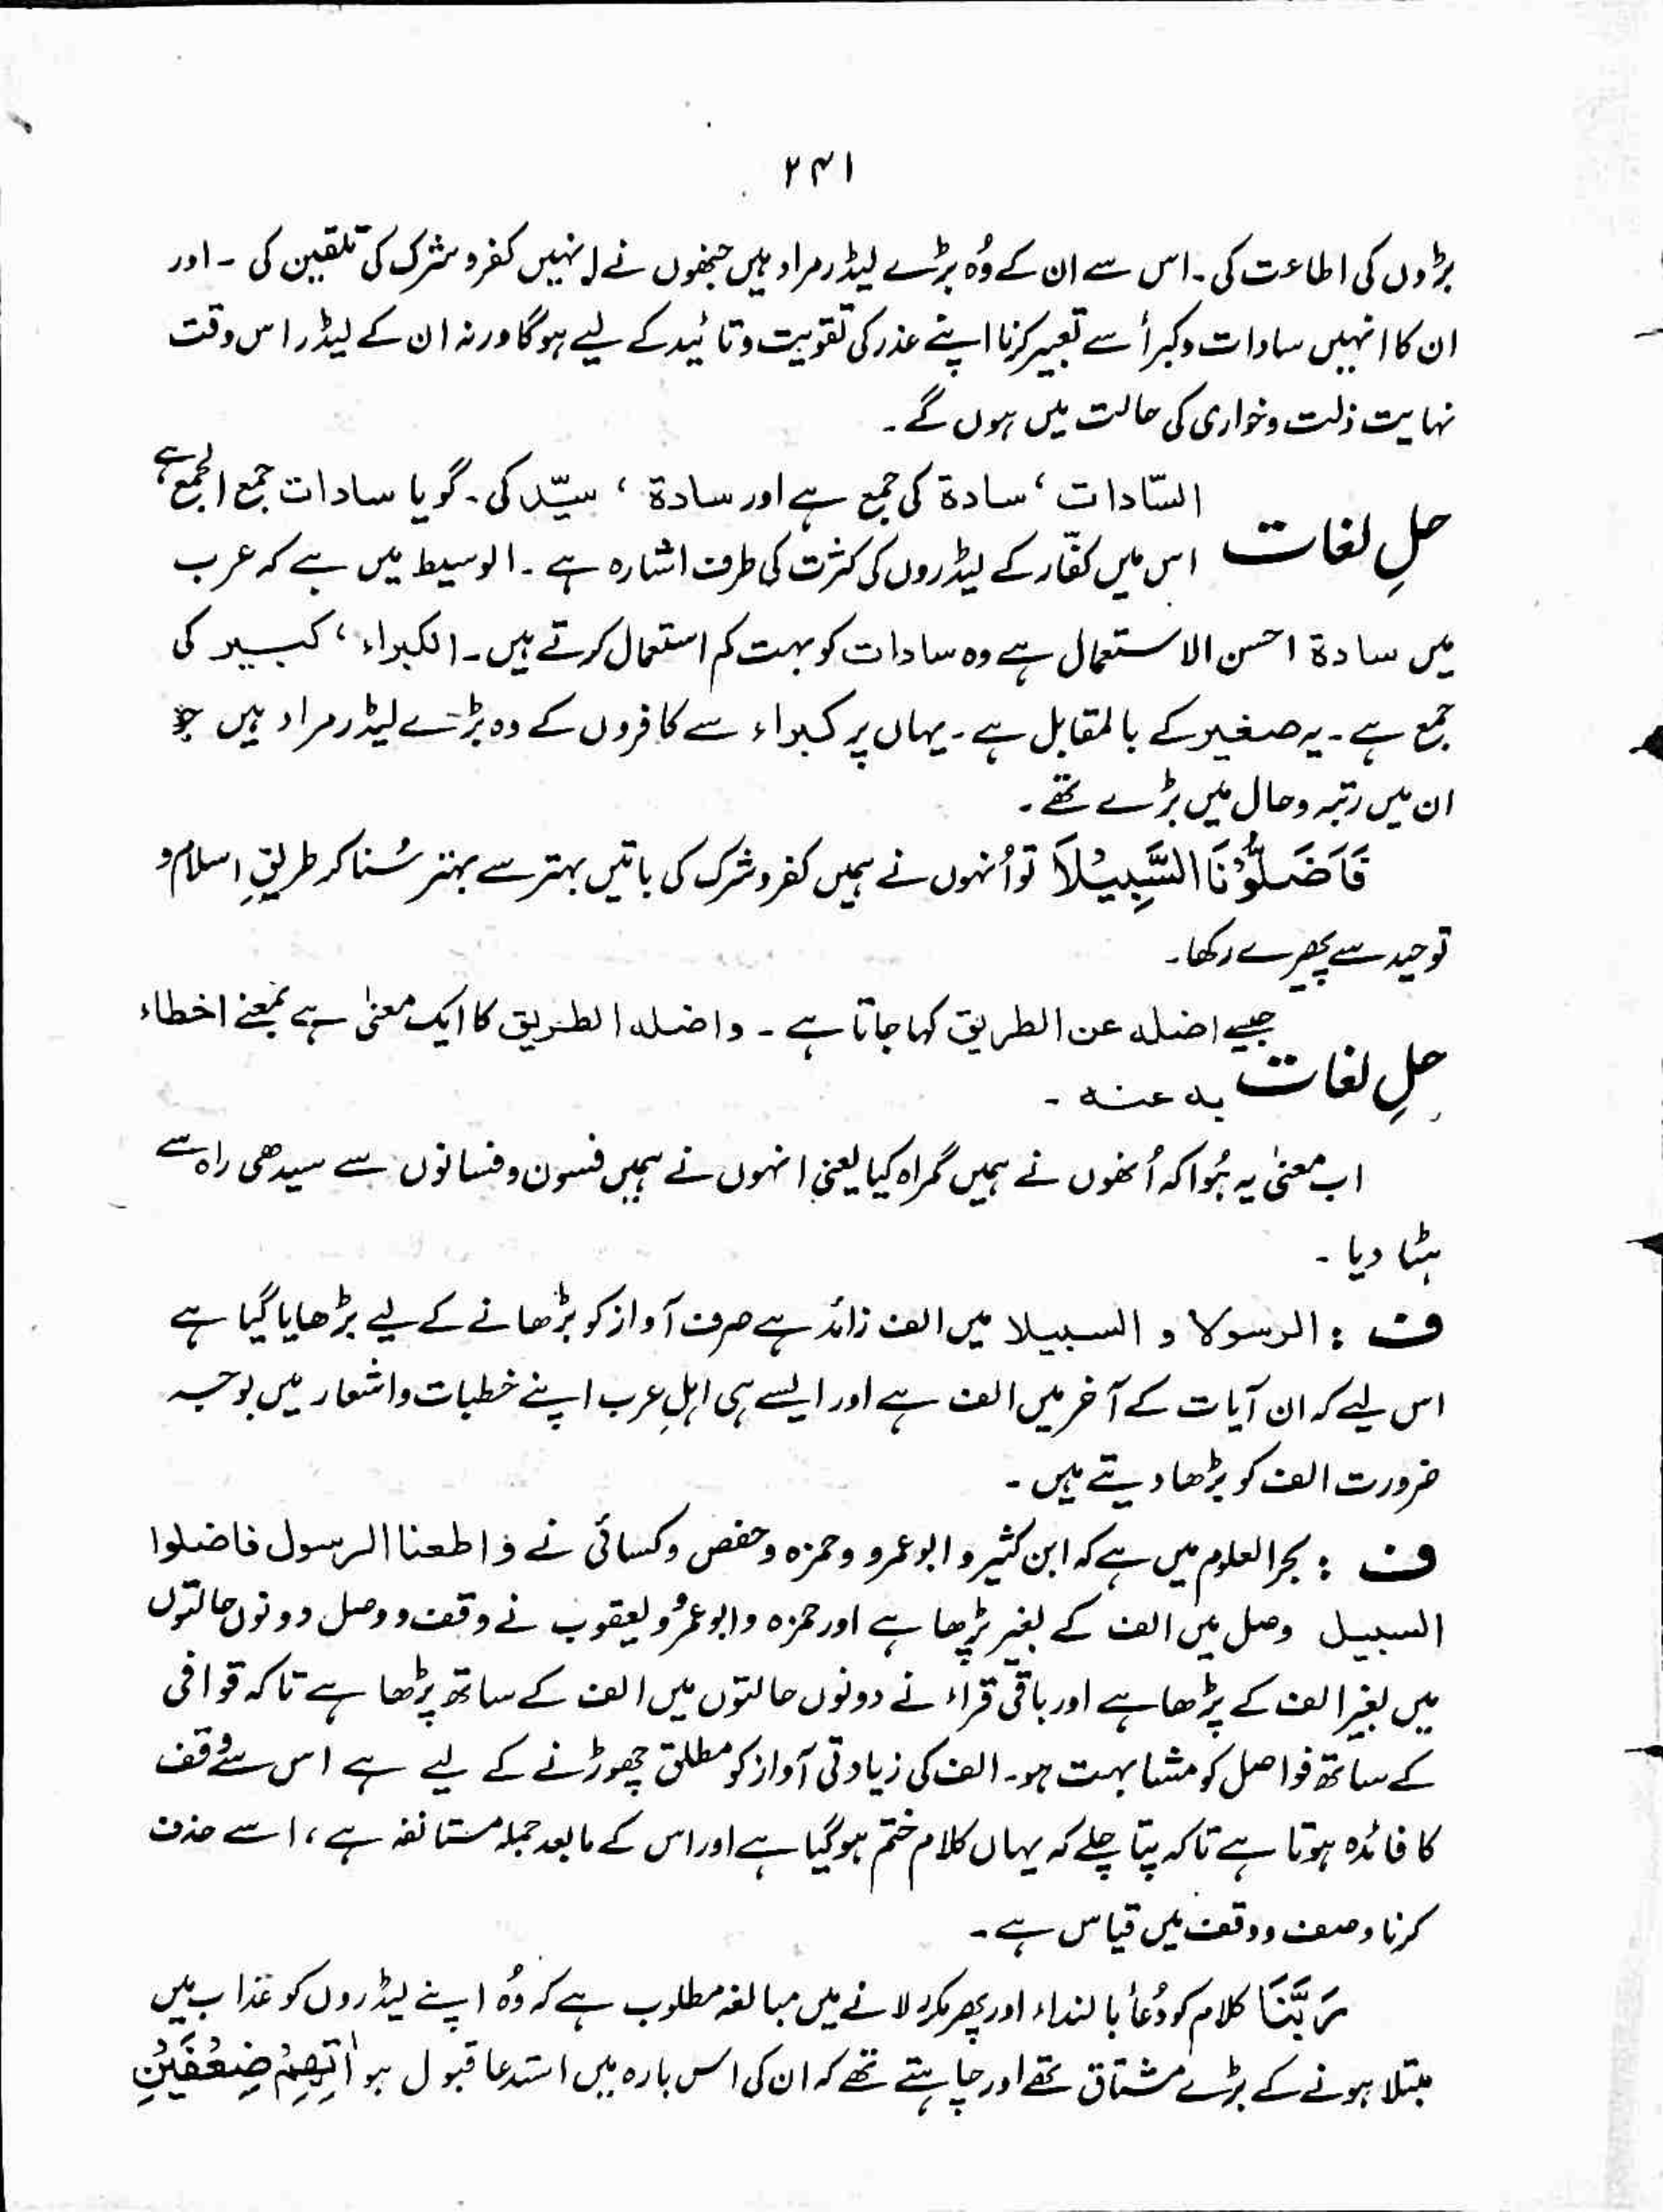 ۲۴۱
بڑوں کی اطاعت کی۔ اس سے ان کے وُہ بڑے لیڈر مراد ہیں جنھوں نے انہیں کفر و شرک کی تلقین کی ۔ اور
ان کا انہیں سادات وکبرأ سے تعبیر کرنا اپنے عذر کی تقویت و تائید کے لیے ہوگا ورنہ ان کے لیڈر اس وقت
نہایت ذلت و خواری کی حالت میں ہوں گے ۔
السّادات ، سادۃ کی جمع ہے اور سادۃ ، سیّد کی ۔ گویا سادات جمع الجمع ہے
حلِ لغات
اس میں کفّار کے لیڈروں کی کثرت کی طرف اشارہ ہے ۔ الوسیط میں ہے کہ عرب
میں سادۃ احسن الاستعمال ہے وہ سادات کو بہت کم استعمال کرتے ہیں ۔ الکبراء ، کبیر کی
جمع ہے ۔ یہ صغیر کے بالمقابل ہے ۔ یہاں پر کبراء سے کافروں کے وہ بڑے لیڈر مراد ہیں جو
ان میں رتبہ و حال میں بڑے تھے ۔
فَاَضَلُّوْنَا السَّبِیْلَا تو اُنہوں نے ہمیں کفر و شرک کی باتیں بہتر سے بہتر سُنا کر طریقِ اسلام و
توحید سے پھیرے رکھا۔
جیسے اضلہ عن الطریق کہا جاتا ہے ۔ واضلہ الطریق کا ایک معنیٰ ہے بمعنے اخطاء
حلِ لغات
بہ عنہ ۔
اب معنیٰ یہ ہُوا کہ اُنھوں نے ہمیں گمراہ کیا یعنی انہوں نے ہمیں فسون و فسانوں سے سیدھی راہ سے
ہٹا دیا ۔
ف : الرسولا و السبیلا میں الف زائد ہے صرف آواز کو بڑھانے کے لیے بڑھایا گیا ہے
اس لیے کہ ان آیات کے آخر میں الف ہے اور ایسے ہی اہلِ عرب اپنے خطبات و اشعار میں بوجہ
ضرورت الف کو بڑھا دیتے ہیں ۔
ف : بحر العلوم میں ہے کہ ابن کثیر و ابوعمرو وحمزہ وحفص وکسائی نے واطعنا الرسول فاضلوا
السبیل وصل میں الف کے بغیر پڑھا ہے اور حمزہ وابوعمرو ویعقوب نے وقف و وصل دونوں حالتوں
میں بغیر الف کے پڑھا ہے اور باقی قراء نے دونوں حالتوں میں الف کے ساتھ پڑھا ہے تاکہ قوافی
کے ساتھ فواصل کو مشابہت ہو۔ الف کی زیادتی آواز کو مطلق چھوڑنے کے لیے ہے اس سے وقف
کا فائدہ ہوتا ہے تاکہ پتا چلے کہ یہاں کلام ختم ہوگیا ہے اور اس کے مابعد جملہ مستانفہ ہے ، اسے حذف
کرنا وصف و وقف میں قیاس ہے ۔
رَبَّنَا کلام کو دُعأ بالنداء اور پھر مکرر لانے میں مبالغہ مطلوب ہے کہ وُہ اپنے لیڈروں کو عذاب میں
مبتلا ہونے کے بڑے مشتاق تھے اور چاہتے تھے کہ ان کی اس بارہ میں استدعا قبول ہو اٰتِھِمْ ضِعْفَیْنِ